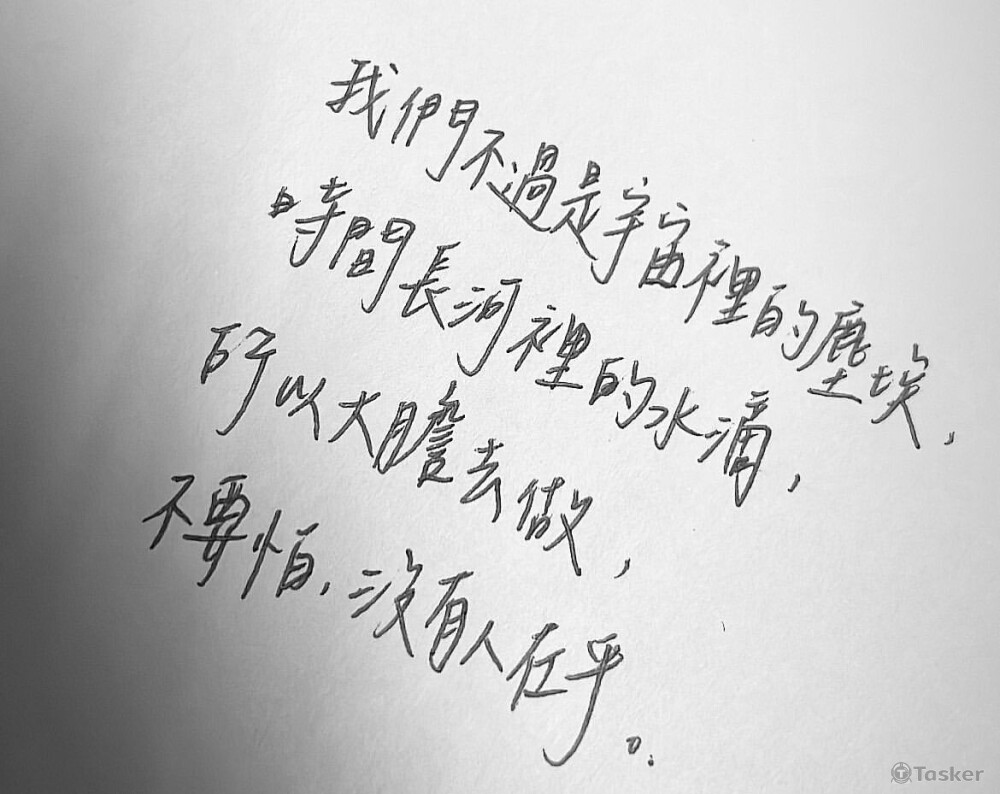 我們不過是宇宙裡的塵埃，
時間長河裡的水滴，
所以大膽去做，
不要怕，沒有人在乎。
Tasker